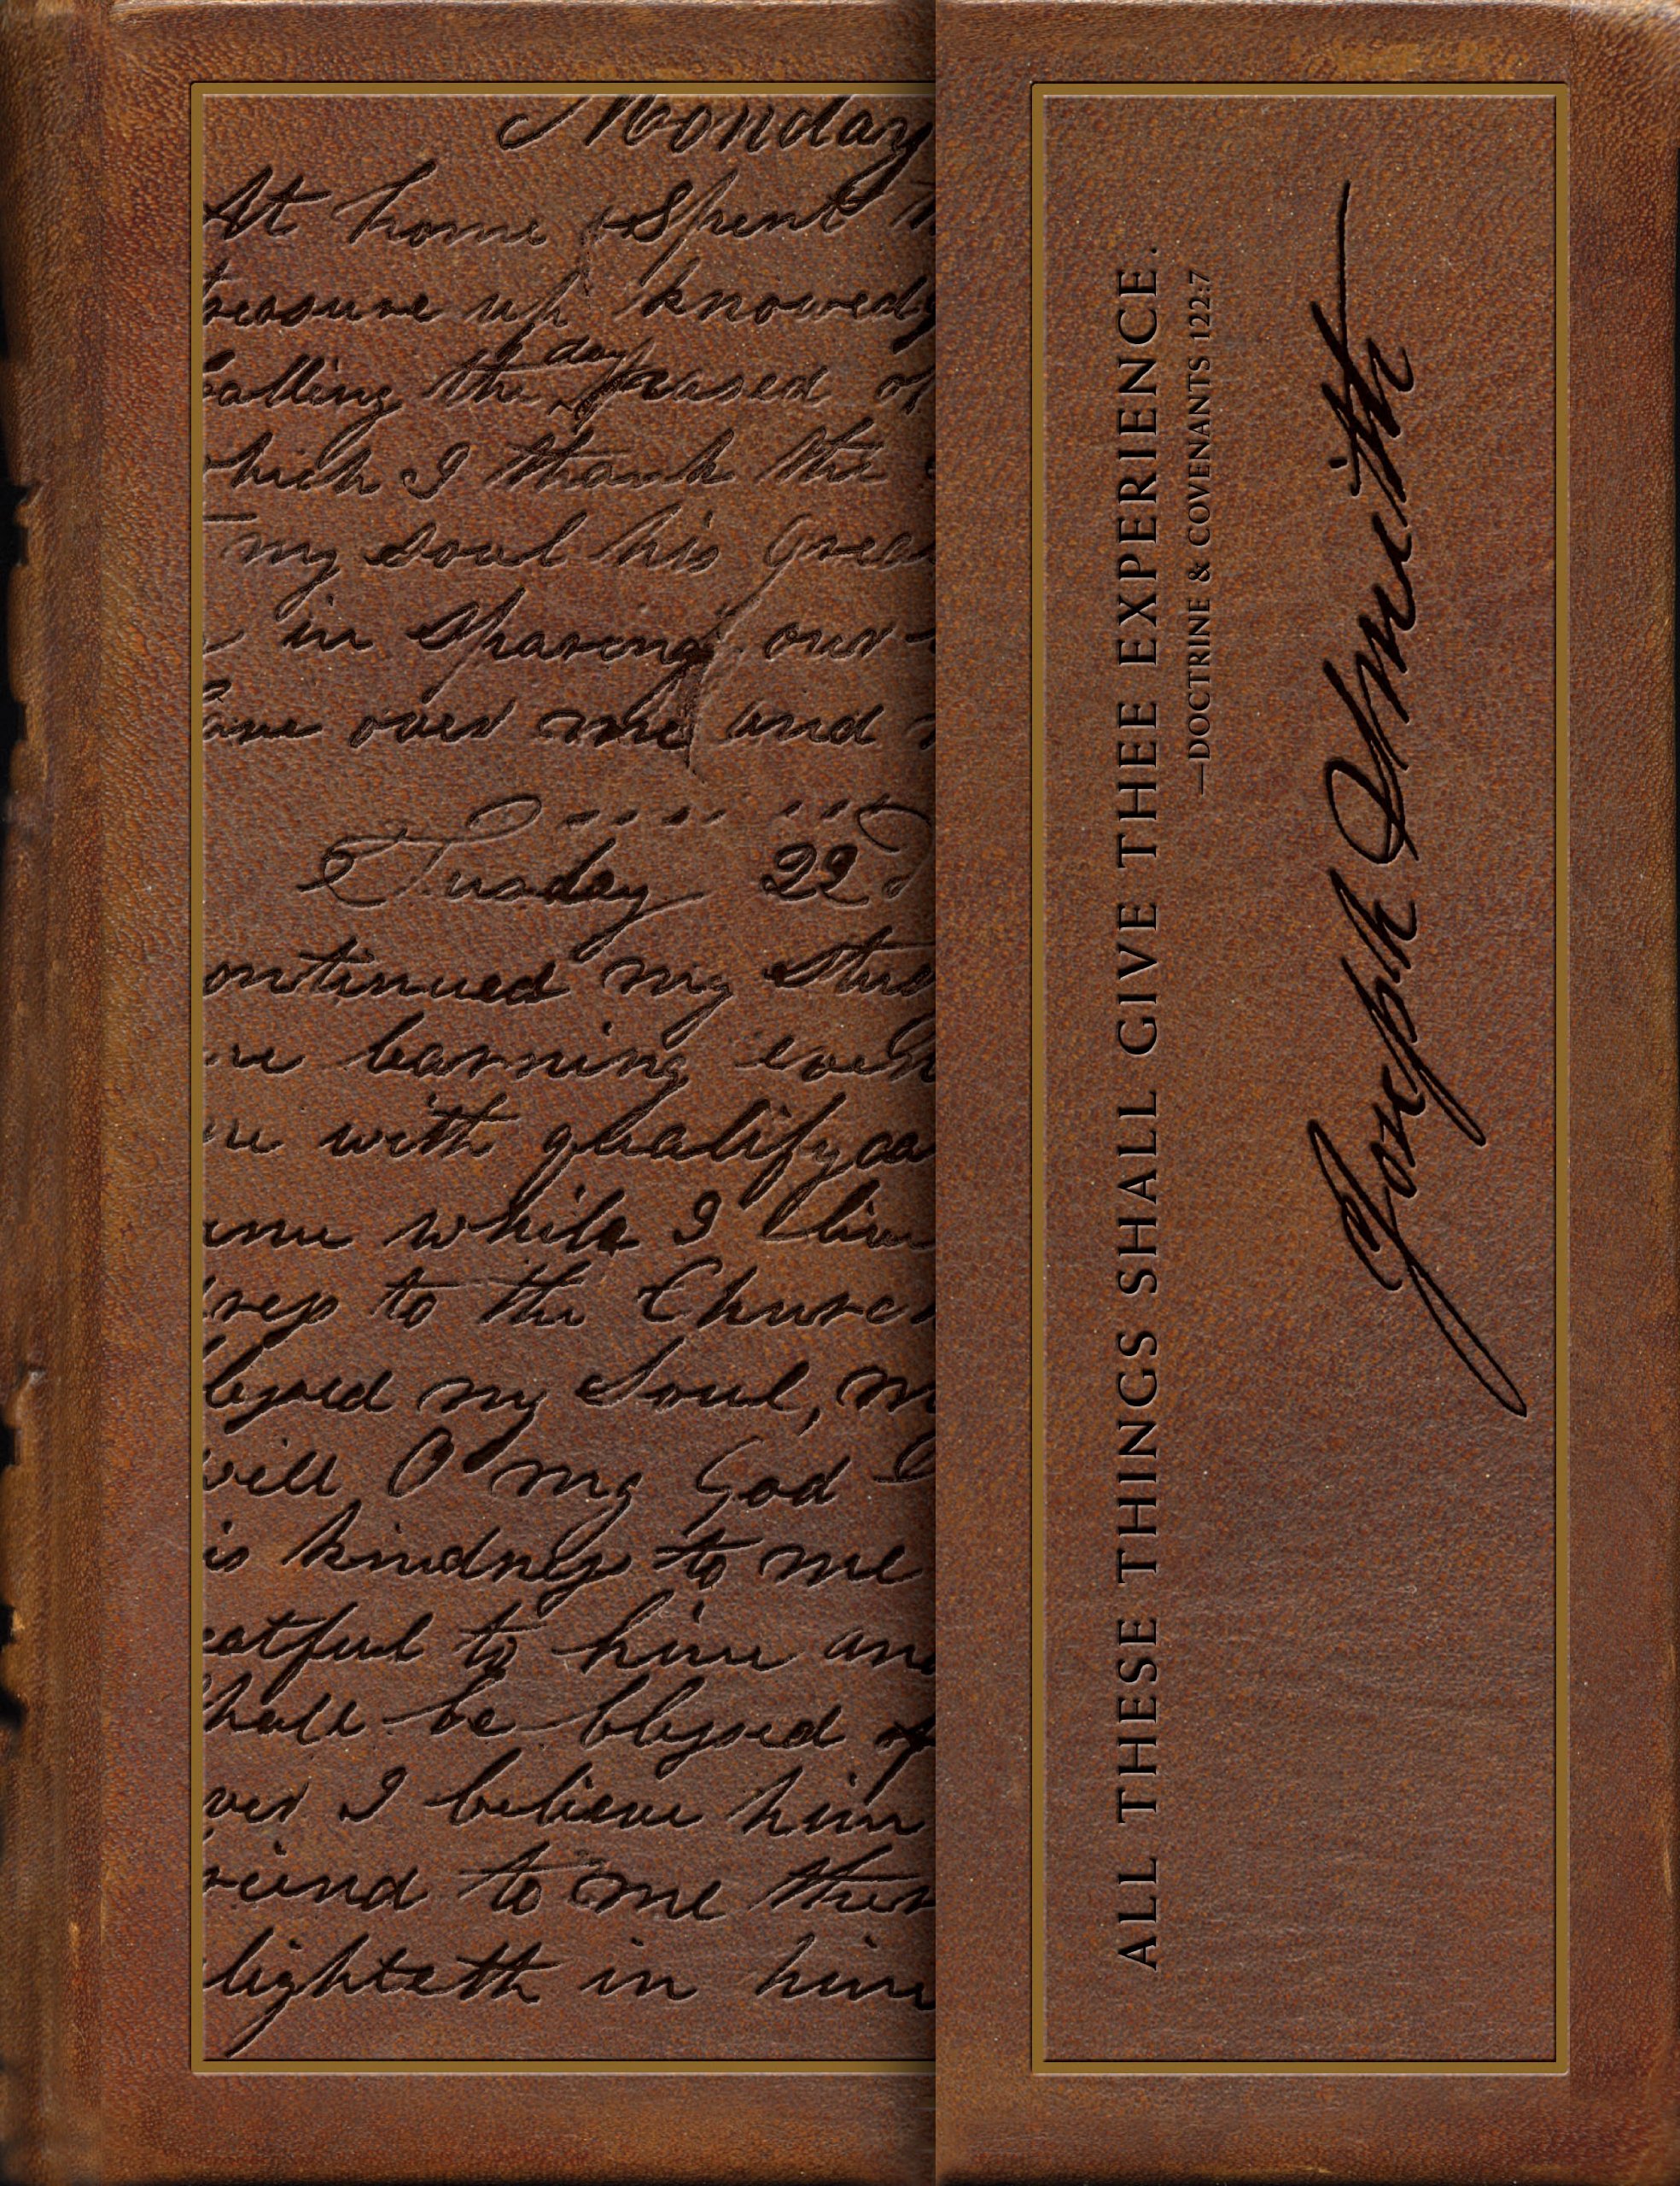 Monday
At home & Spent
treasure up knowedg
calling the day paased of
which I thank the
my soul his grea
in Sparong our
have over me and
Tusday 22
ontinued my stud
learning even
with qhalifyca
while I live
to the Church
blessed my Soul,
will O my God
is kindness to me
eatful to him and
shall be blessed of
ver I believe him
riend to me
lighteth in him
ALL THESE THINGS SHALL GIVE THEE EXPERIENCE.
—DOCTRINE & COVENANTS 122:7
Joseph Smith